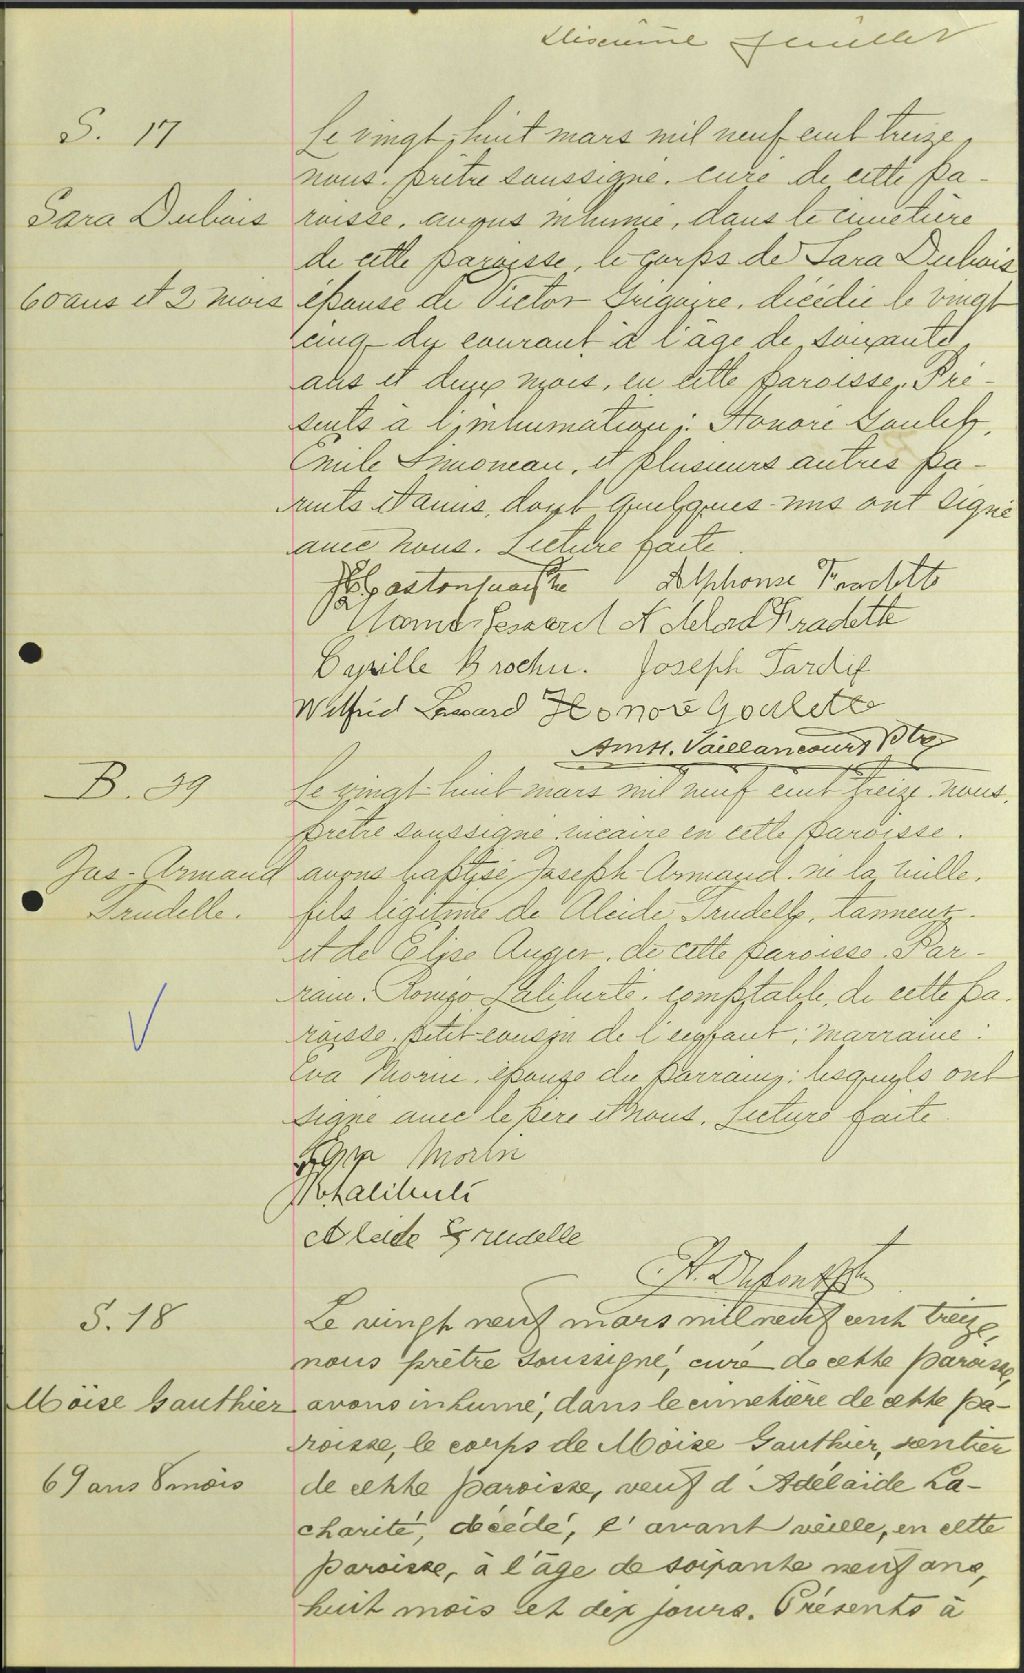 Dixième feuillet
S. 17
Sara Dubois
60 ans et 2 mois
Le vingt-huit mars mil neuf cent treize,
nous, prêtre soussigné, curé de cette pa-
roisse, avons inhumé, dans le cimetière
de cette paroisse, le corps de Sara Dubois
épouse de Victor Grégoire, décédée le vingt
cinq du courant à l'âge de soixante
ans et deux mois, en cette paroisse. Pré-
sents à l'inhumation: Honoré Goulet,
Emile Simoneau, et plusieurs autres pa-
rents et amis, dont quelques-uns ont signé
avec nous. Lecture faite.
Alphonse Fradette
Adelard Fradette
Cyrille Brochu. Joseph Tardif
Wilfrid Lessard Honoré Goulette
Am. H. Vaillancourt Ptre
B. 39
Jos-Armand
Trudelle.
Le vingt-huit mars mil neuf cent treize, nous,
prêtre soussigné, vicaire en cette paroisse,
avons baptisé Joseph-Armand, né la veille,
fils légitime de Alcide Trudelle, tanneur,
et de Elise Auger, de cette paroisse. Par-
rain: Roméo Laliberté, comptable, de cette pa-
roisse, petit-cousin de l'enfant; marraine:
Eva Morin, épouse du parrain; lesquels ont
signé avec le père et nous. Lecture faite
Eva Morin
R. Laliberté
Alcide Trudelle
Dupont Ptre
S. 18
Moïse Gauthier
69 ans 8 mois
Le vingt neuf mars mil neuf cent treize,
nous prêtre soussigné, curé de cette paroisse,
avons inhumé, dans le cimetière de cette pa-
roisse, le corps de Moïse Gauthier, rentier
de cette paroisse, veuf d'Adélaïde La-
charité, décédé, l'avant veille, en cette
paroisse, à l'âge de soixante neuf ans,
huit mois et dix jours. Présents à